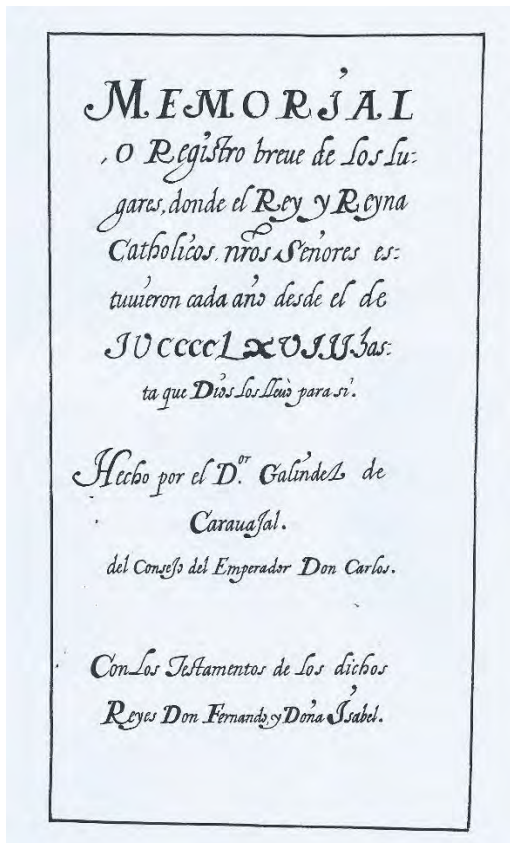 MEMORJAL
, O Regiſtro breue de los lu:
gares, donde el Rey y Reyna
Catholicos. nr̃os Señores es:
tuuieron cada año desde el de
JUCCCCLXVIIJ has:
ta que Dios los lleuò para si.
Hecho por el D.or Galindez de
Carauajal.
del Consejo del Emperador Don Carlos.
Con los Teſtamentos de los dichos
Reyes Don Fernando, y Doña Jsabel.